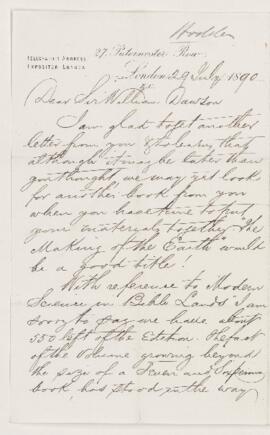 Hodder
TELEGRAPHIC ADDRESS
EXPOSITOR LONDON
27, Paternoster Row,
London 29 July 1890
Dear Sir William Dawson
I am glad to get another
letter from you & to learn that
although it may be later than
you thought we may yet look
for another book from you
when you have time to put
your materials together. "The
Making of the Earth" would
be a good title!
With reference to Modern
Science in Bible Lands I am
sorry to say we have about
550 left of the Edition. The fact
of the Volume growing beyond
the size of a Seven and Sixpenny
book, has stood in the way